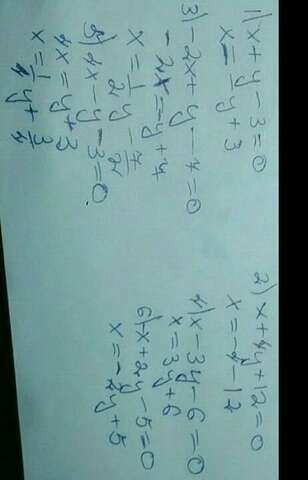 1) x + y - 3 = 0
x = - y + 3
3) - 2x + y - 4 = 0
- 2x = - y + 4
x = 1/2 y - 4/2
5) 4x - y - 3 = 0
4x = y + 3
x = 1/4 y + 3/4
2) x + 4y + 12 = 0
x = - 4 - 12
4) x - 3y - 6 = 0
x = 3y + 6
6) x + 2y - 5 = 0
x = - 2y + 5